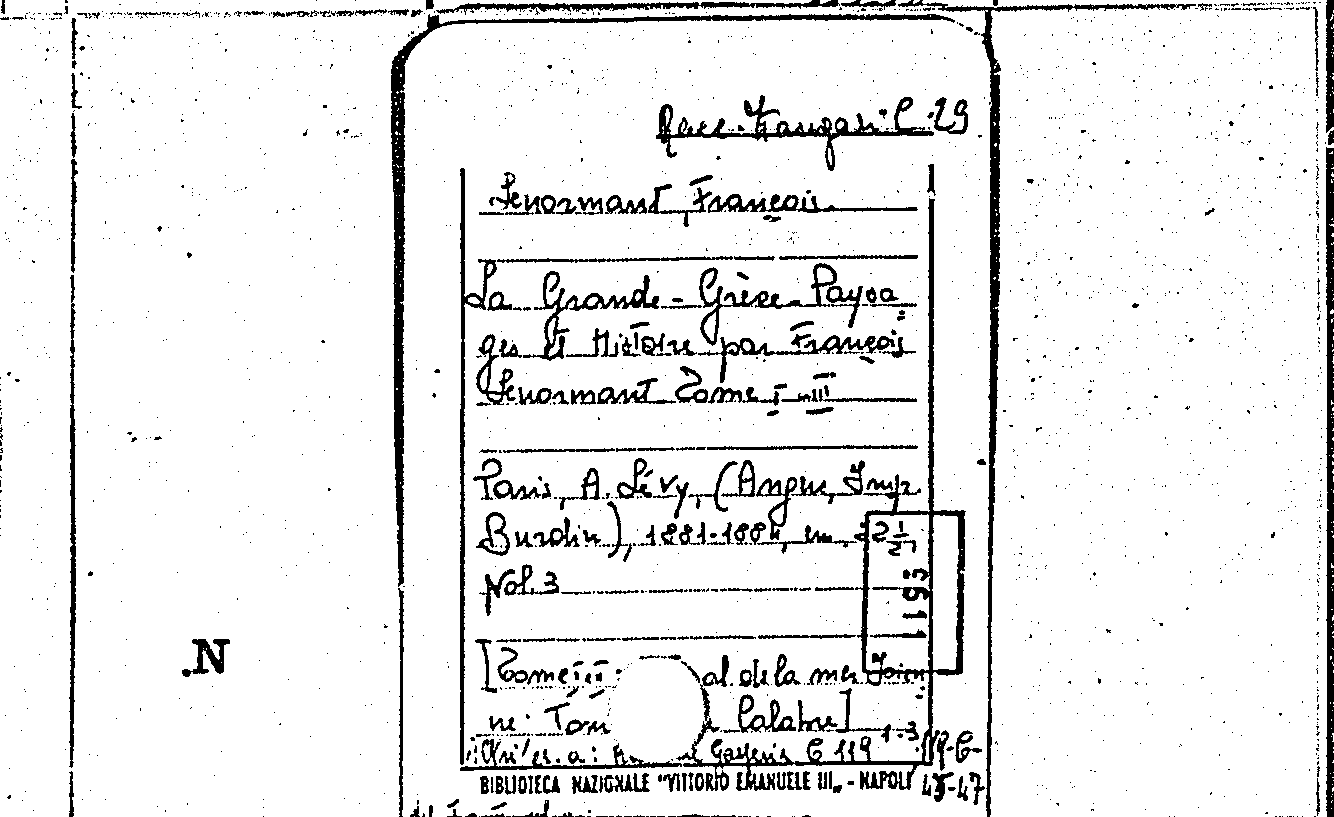 Race. C. 29
Lenormant, François.
La Grande-Grèce. Paysa
ges et Histoire par François
Lenormant Tome I-III
Paris, A. Lévy, (Angers, Imp.
Burdin), 1881-1884, in. 22 1/2
Vol. 3
1153
[Tome I-II: al de la mer Ionien
ne: Tom Calabre]
a: C 119 1-3
45-47
BIBLIOTECA NAZIONALE "VITTORIO EMANUELE III„ - NAPOLI
N.